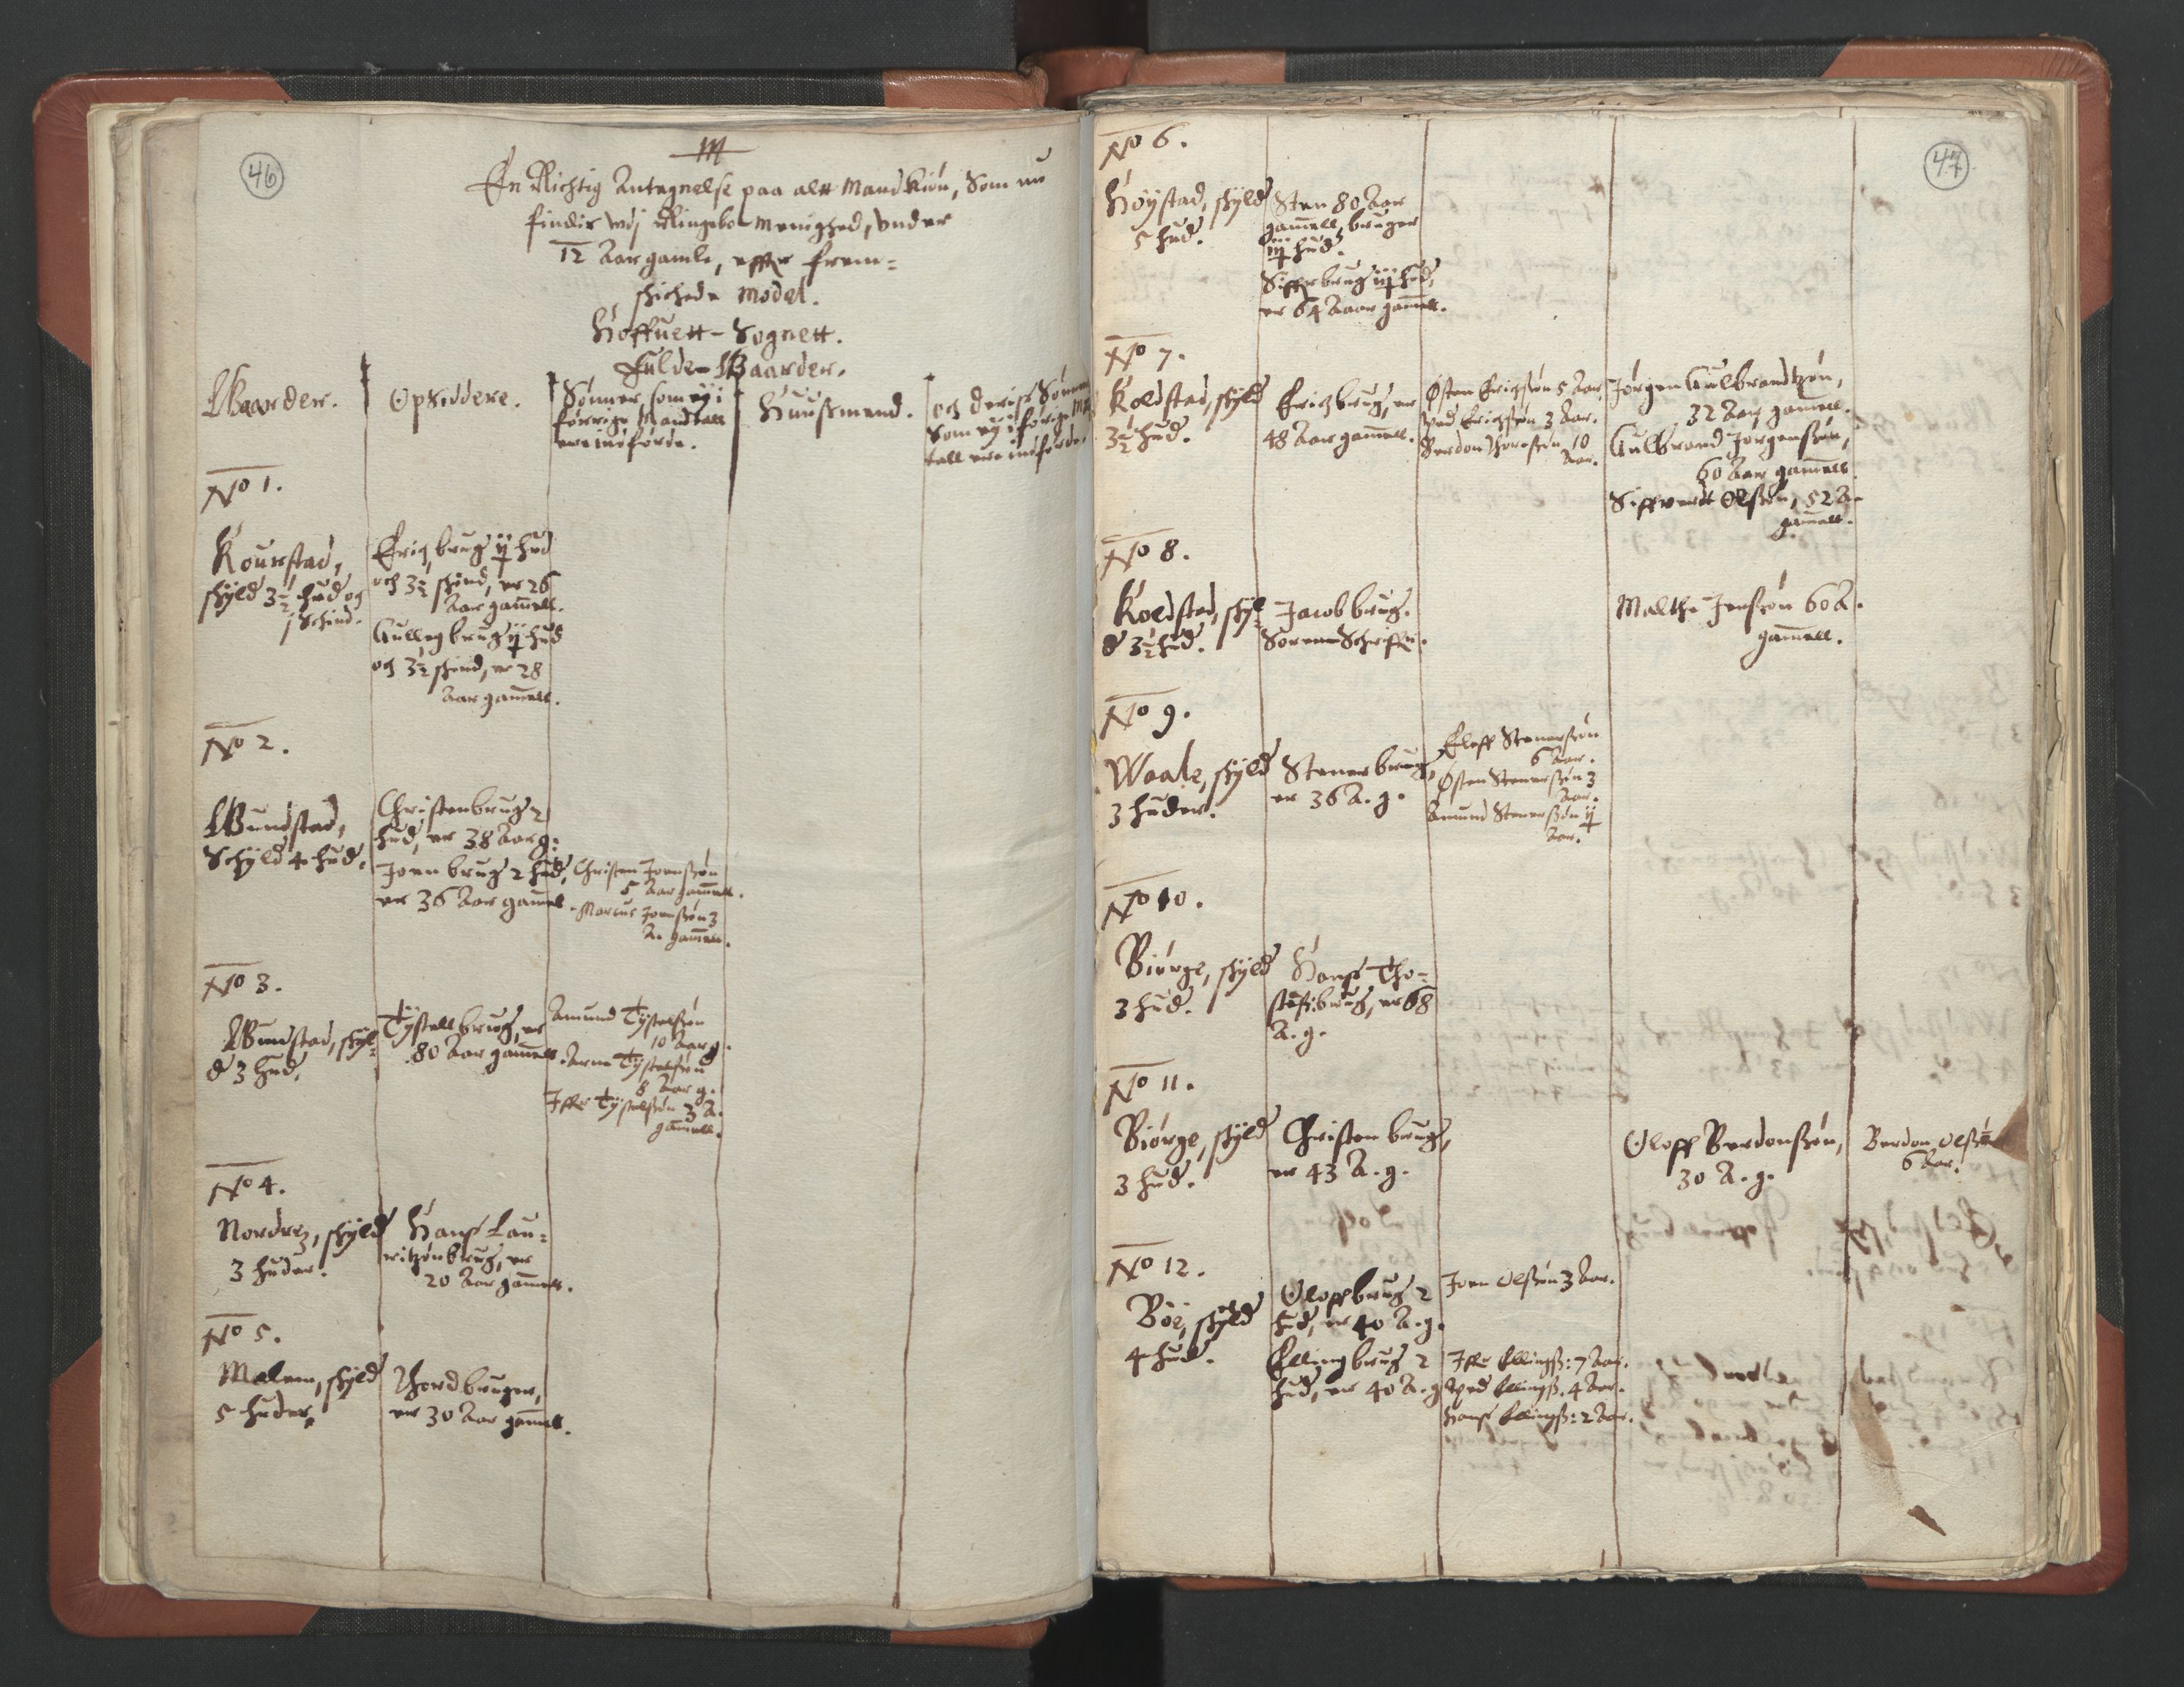 46
M
En Richtig Antegnelse paa alt Mandkiøn, Som nu
findis wdj Ringebo Menighed, under
12 Aar gamle, effter frem=
skichede Model.
Hoffuett-Sognett.
Fulde Gaarder.
Gaarder.
Opsiddere.
Sønner som ey i
forrige Mandtall
ere indførde.
Huusmend.
och deris Sønner
Som ey i forige M
tall ere indførde.
No 1.
Kourstad,
skyld 3½ hud og
j Schind.
Erich brug ij hud
och 3½ skind, er 26
Aar gamell.
Gulleg brug ij hud
och 3½ skind, er 28
Aar gamell.
No 2.
Gundstad,
Schyld 4 hud.
Christen brug 2
hud, er 38 Aar g:
Joen brug 2 hud,
er 36 Aar gamel
Christen Joensøn
5 Aar gamell.
Marcus Joensøn 3
A. gamell.
No 3.
Gundstad, skyl=
d 3 hud.
Tystell brug, er
80 Aar gamell.
Amund Tystelsøn
10 Aar g.
Arne Tystelsøn
8 Aar g.
Iffer Tystelsøn 3 A.
gamell.
No 4.
Nordre, skyld
3 huder.
Hans Lau=
ritzøn brug, er
20 Aar gamell.
No 5.
Malem, skyld
5 huder.
Thord bruger,
er 30 Aar gamell.
47
No 6.
Høystad, skyld
5 hud.
Sten 80 Aar
gamell, bruger
iij hud.
Siffer brug ij hud,
er 64 Aaar gamell.
No 7.
Koldstad, skyld
3½ hud.
Erich brug, er
48 Aar gamell.
Østen Erichsøn 5 Aar.
Erichsøn 3 Aar.
Berdon Thoresøn 10
Aar.
Jørgen Gulbrandtzøn,
32 Aar gamell.
Gulbrand Jørgensøn,
60 Aar gamell.
Siffwert Olsøn, 52 A
gamell.
No 8.
Koldstad, skyl
d 3½ hud.
Jacob brug.
Soren Schriffer.
Malthe Jensøn 60 A.
gamell.
No 9.
Waale, skyld
3 huder.
Stener brug,
er 36 A. g.
Eloff Stenersøn
6 Aar.
Østen Stenersøn 3
Aar.
Amund Stenersøn ij
Aar.
No 10.
Biørge, skyld
3 hud.
Hans Tho=
stensß: brug, er 68
A. g.
No 11.
Biørge, skyld
3 hud.
Christen brug,
er 43 A. g.
Oloff Berdonsøn,
30 A. g.
Berdon Olsøn
6 Aar.
No 12.
Böe, skyld
4 hud.
Oloff brug 2
hud, er 40 A. g.
Elling brug 2
hud, er 40 A. g.
Joen Olsøn 3 Aar.
Iffer Ellingß: 7 Aar.
Ellingß. 4 Aar.
Hans Ellingß: 2 Aar.